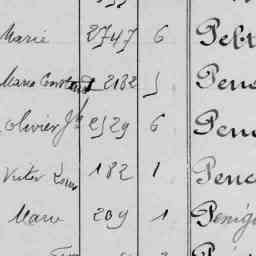 Marie 2747 6 Pelt
Marie Constant 2182 5 Pens
Olivier Jh 2529 6 Penc
Victor Louis 182 1 Penc
Marie 209 1 Penig